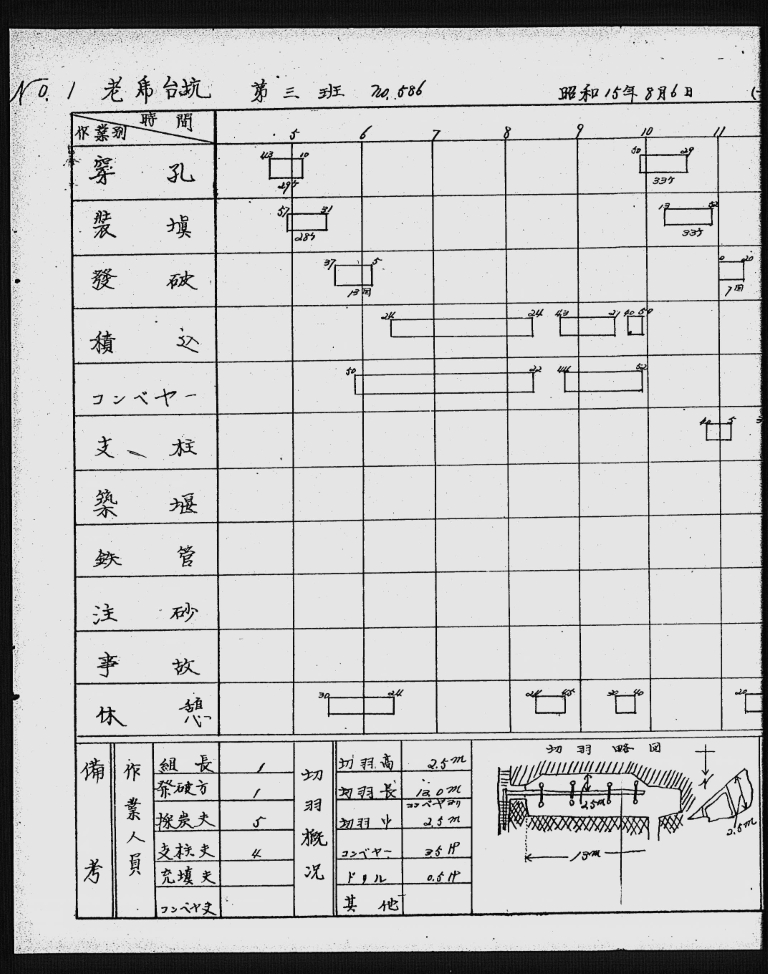 No. 1 老虎台坑 第三班 No. 586 昭和15年8月6日
時間
作業別
5 6 7 8 9 10 11
穿孔 43 10 50 29
29ケ 33ケ
装填 57 31 13 52
28ケ 33ケ
發破 37 5 0 20
13回 7回
積込 24 24 43 31 40 50
コンベヤー 50 22 44 52
支柱 40 5
築堰
鉄管
注砂
事故
休憩 30 24 24 45 30 40 20
備考
作業人員
組長 1
発破方 1
採炭夫 5
支柱夫 4
充填夫
コンベヤ夫
切羽概況
切羽高 2.5m
切羽長 13.0m
コンベヤヨリ
切羽巾 2.5m
コンベヤー 3.5HP
ドリル 0.5HP
其他
切羽略図
N
2.5m
2.5m
13m